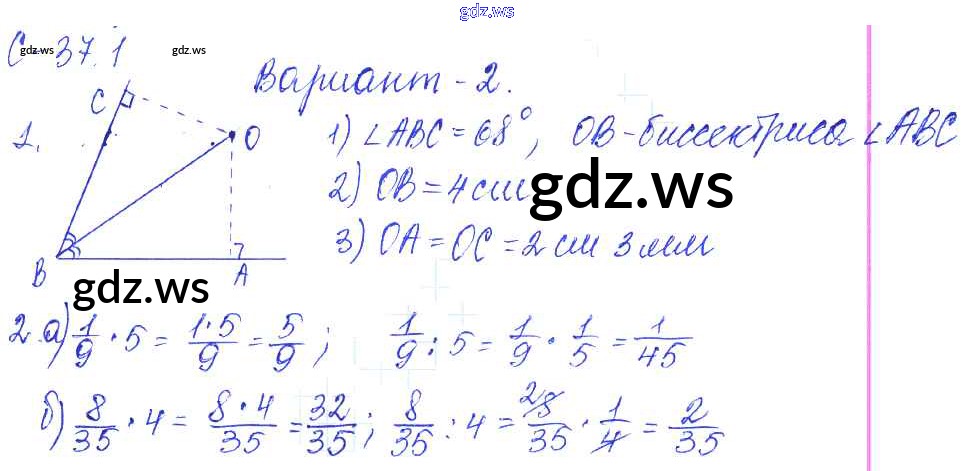 gdz.ws
С-37.1
gdz.ws
gdz.ws
Вариант-2.
C
1.
O
B
A
1) ∠ABC = 68°, OB-биссектриса ∠ABC
2) OB = 4 см
gdz.ws
3) OA = OC = 2 см 3 мм
gdz.ws
2.а) 1/9 · 5 = 1·5/9 = 5/9; 1/9 : 5 = 1/9 · 1/5 = 1/45
б) 8/35 · 4 = 8·4/35 = 32/35; 8/35 : 4 = 2 8/35 · 1/4 = 2/35